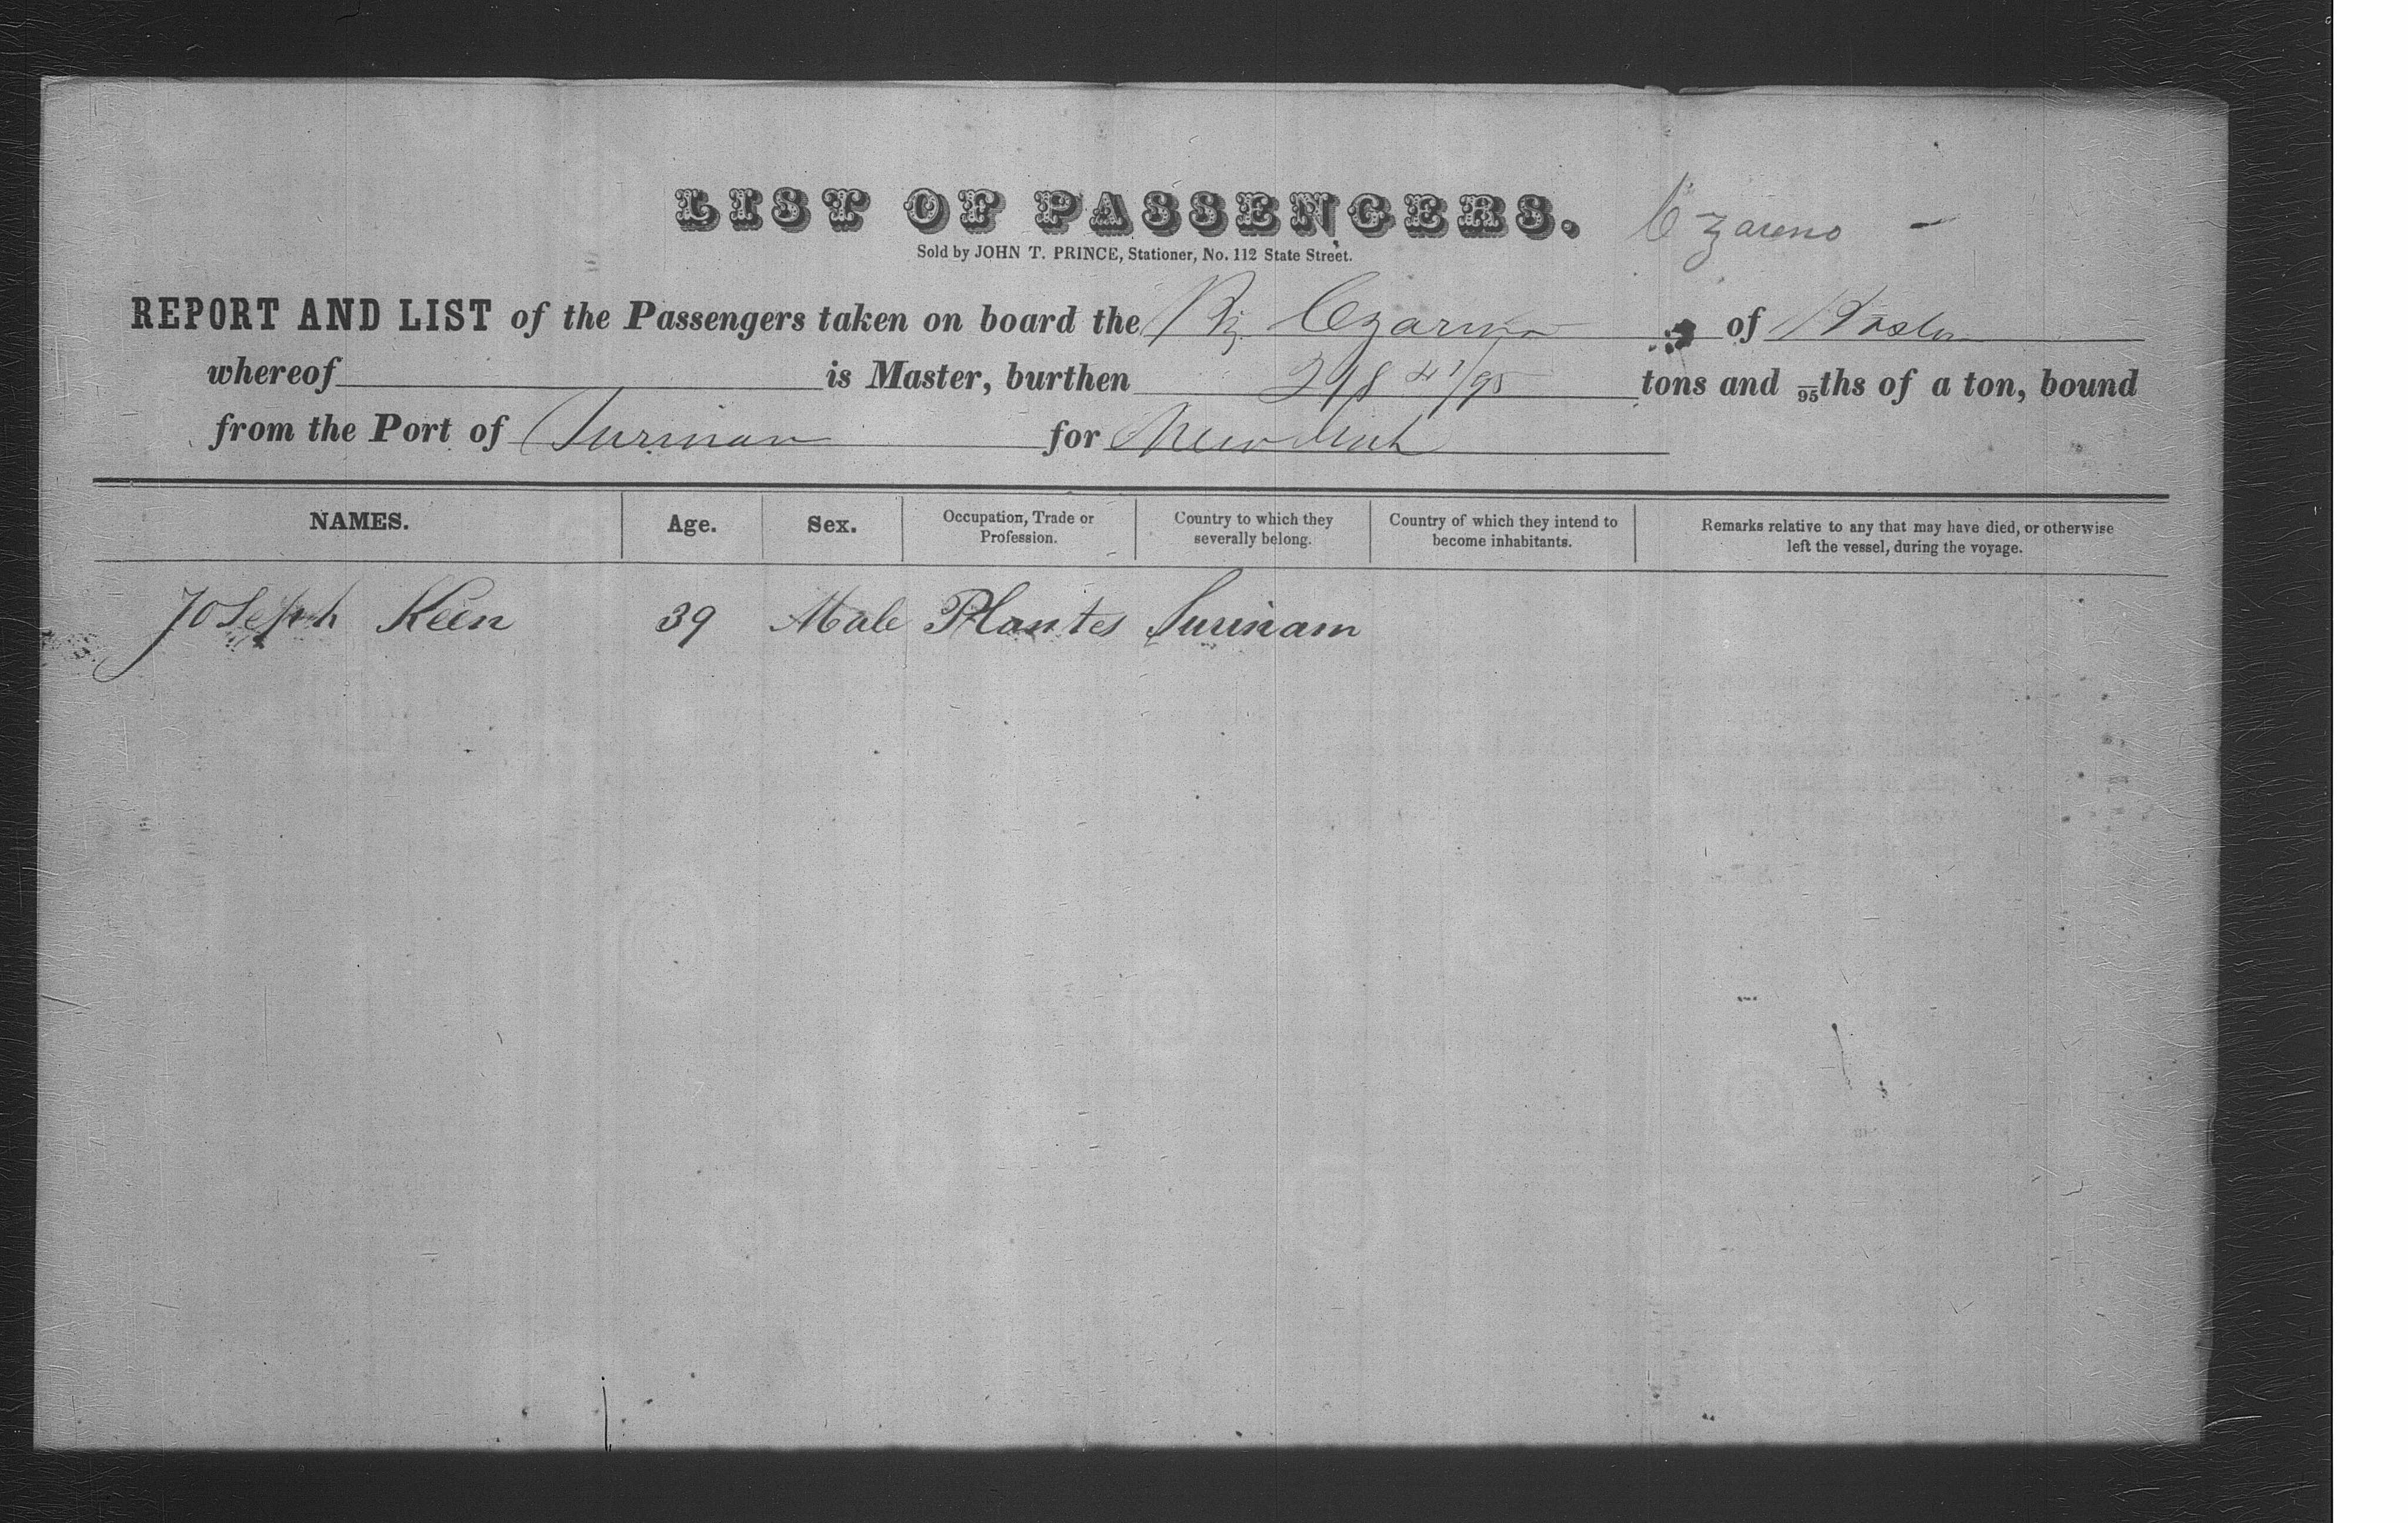 LIST OF PASSENGERS. Czareno -
Sold by JOHN T. PRINCE, Stationer, No. 112 State Street.
REPORT AND LIST of the Passengers taken on board the Brig Czarina of Boston
whereof is Master, burthen 218 41/95 tons and 95ths of a ton, bound
from the Port of Surinam for New York
NAMES. Age. Sex. Occupation, Trade or Profession. Country to which they severally belong. Country of which they intend to become inhabitants. Remarks relative to any that may have died, or otherwise left the vessel, during the voyage.
Joseph Keen 39 Male Plantes Surinam